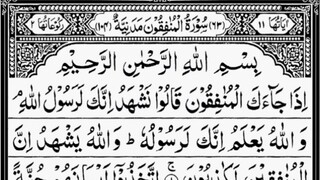 اٰیَاتُهَا ١١ (٦٣) سُوْرَةُ الْمُنٰفِقُوْنَ مَدَنِیَّةٌ (١٠٤) رُكُوْعَاتُهَا ٢
بِسْمِ اللّٰهِ الرَّحْمٰنِ الرَّحِیْمِ
اِذَا جَآءَكَ الْمُنٰفِقُوْنَ قَالُوْا نَشْهَدُ اِنَّكَ لَرَسُوْلُ اللّٰهِ ۘ
وَاللّٰهُ یَعْلَمُ اِنَّكَ لَرَسُوْلُهٗ ؕ وَاللّٰهُ یَشْهَدُ اِنَّ
الْمُنٰفِقِیْنَ لَكٰذِبُوْنَ ۚ ١ اِتَّخَذُوْۤا اَیْمَانَهُمْ جُنَّةً